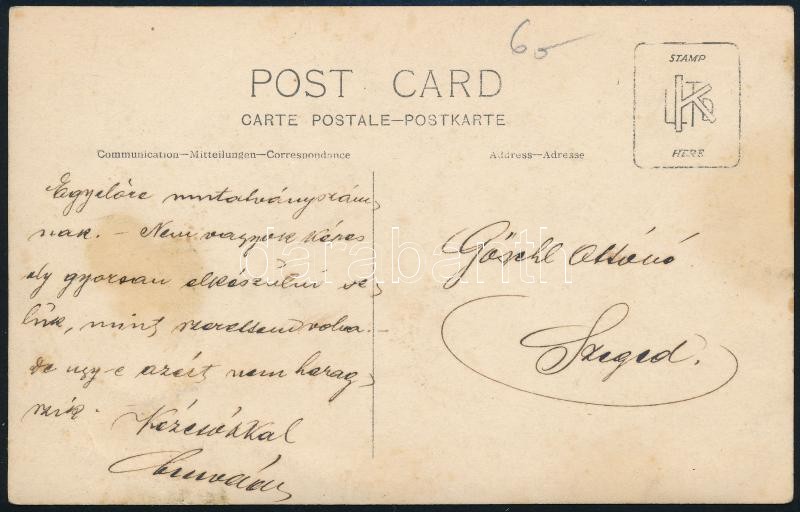 60
POST CARD
CARTE POSTALE—POSTKARTE
STAMP
HERE
Communication—Mitteilungen—Correspondance
Address—Adresse
Egyelőre mutatványszám,
nak. — Nem vagyok képes
ily gyorsan elkészülni ve,
lük, mint szerettem volna. —
de ugy-e azért nem harag,
szik.
Kézcsókkal
Göschl Ottóné
Szeged.
darabanth